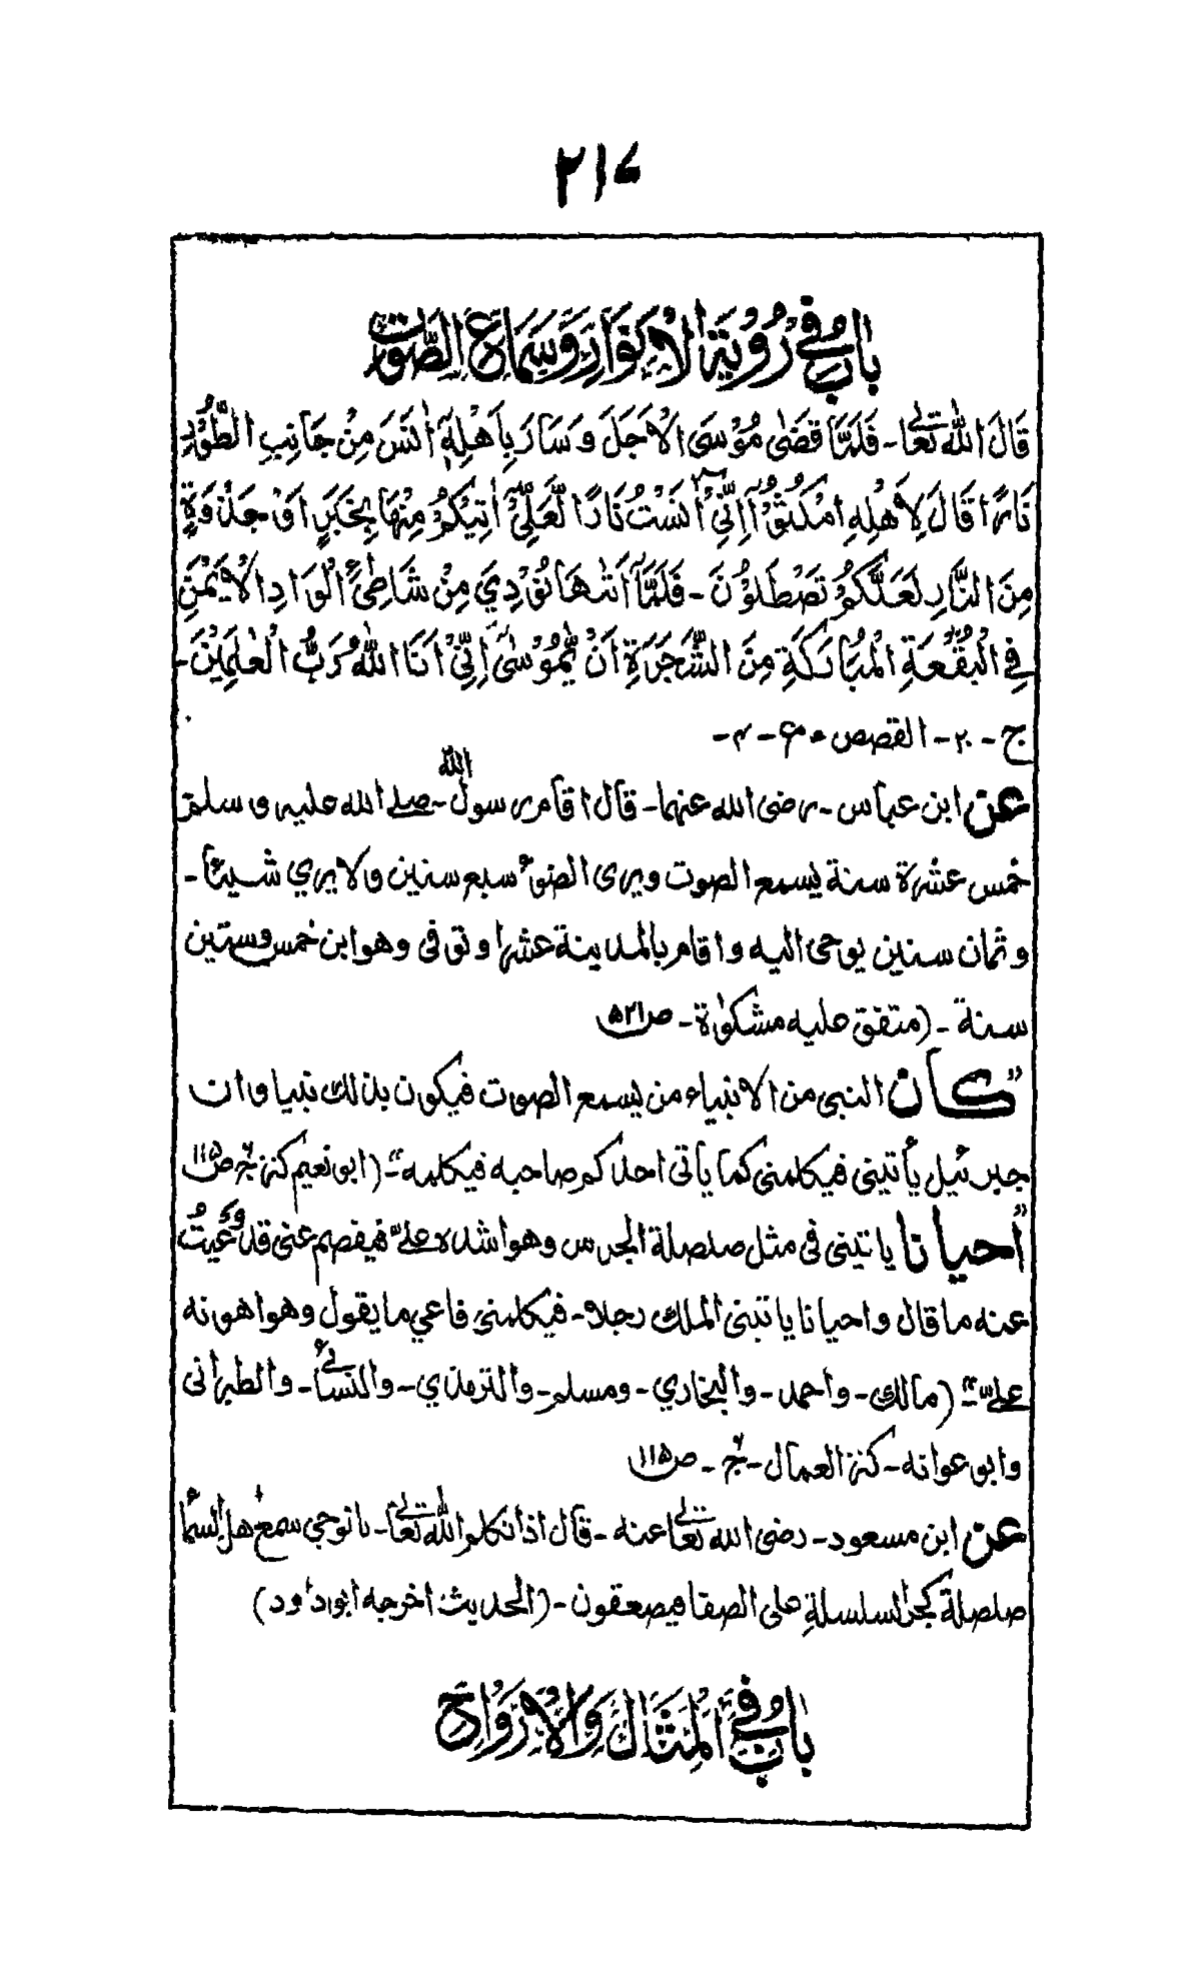 ۲۱۷
بَابٌ فِیْ رُوْیَةِ الْاَنْوَارِ وَسَمَاعِ الصَّوْتِ
قَالَ اللّٰهُ تَعَالٰی۔ فَلَمَّا قَضٰی مُوْسَی الْاَجَلَ وَسَارَ بِاَهْلِهٖۤ اٰنَسَ مِنْ جَانِبِ الطُّوْرِ
نَارًا قَالَ لِاَهْلِهِ امْكُثُوْۤا اِنِّیْۤ اٰنَسْتُ نَارًا لَّعَلِّیْۤ اٰتِیْكُمْ مِنْهَا بِخَبَرٍ اَوْ جَذْوَةٍ
مِنَ النَّارِ لَعَلَّكُمْ تَصْطَلُوْنَ۔ فَلَمَّاۤ اَتٰىهَا نُوْدِیَ مِنْ شَاطِئِ الْوَادِ الْاَیْمَنِ
فِی الْبُقْعَةِ الْمُبَارَكَةِ مِنَ الشَّجَرَةِ اَنْ یّٰمُوْسٰۤی اِنِّیْۤ اَنَا اللّٰهُ رَبُّ الْعٰلَمِیْنَ۔
ج۔ ۲۰۔ القصص ع۔ ۴۔
عن ابن عباس۔ رضی الله عنهما۔ قال اقام رسول الله۔ صلے الله علیه وسلم
خمس عشرة سنة یسمع الصوت ویری الضوء سبع سنین ولا یری شیئا۔
وثمان سنین یوحی الیه واقام بالمدینة عشرا وتوفی وهو ابن خمس وستین
سنة۔ (متفق علیه مشکوٰة۔ ص۵۲۱
"کان النبی من الانبیاء من یسمع الصوت فیکون بذلك نبیا وان
جبرئیل یأتینی فیکلمنی کما یأتی احدکم صاحبه فیکلمه"۔ (ابو نعیم کنز ج۶ ص۱۱۵
"احیانا یاتینی فی مثل صلصلة الجرس وهو اشده علیّ فیفصم عنی قد وَعَیْتُ
عنه ما قال واحیانا یاتینی الملك رجلا۔ فیکلمنی فاعی ما یقول وهو اهونه
علیّ"۔ (مالك۔ واحمد۔ والبخاري۔ ومسلم۔ والترمذي۔ والنسائی۔ والطبرانی
وابو عوانه۔ کنز العمال۔ ج۶۔ ص۱۱۵
عن ابن مسعود۔ رضی الله تعالٰی عنه۔ قال اذا تکلم الله تعالٰی۔ بالوحی سمع اهل السما
صلصلة کجر السلسلةِ علی الصفا فیصعقون۔ (الحدیث اخرجه ابو داود)
بَابٌ فِیْ الْمِثَالِ وَالْاَرْوَاحِ